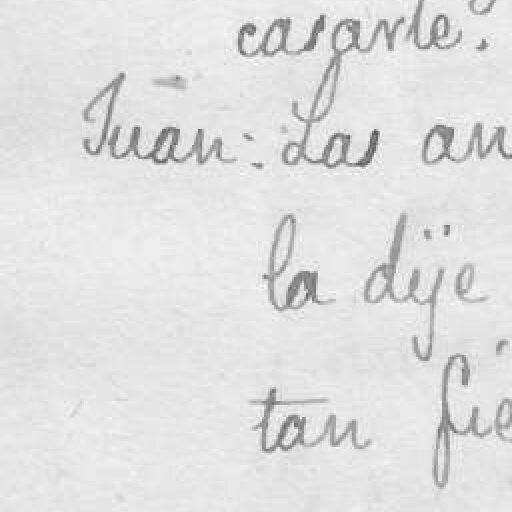 casarle.
Juan: Las an
la dije
tan fie